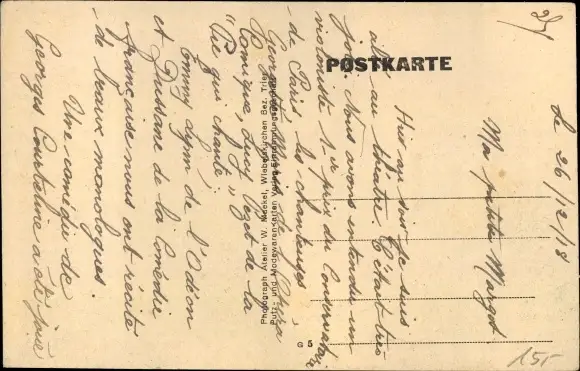 POSTKARTE
Le 26/12/18
Ma petite Margot
Hier au soir je suis
allé au théâtre. C'était très
joli. Nous avons entendu un
violoniste 1er prix du Conservatoire
de Paris, les chanteuses
Georgette
comique, Lucy de la
" Pie qui chante "
Tommy de l'Odéon
et de la Comédie
française nous ont récité
de beaux monologues.
Une comédie de
Georges Courteline a été jouée
Photograph Atelier W. Nickel, Wiebelskirchen Bez. Trier
Putz- und Modewaren
G 5
15,-